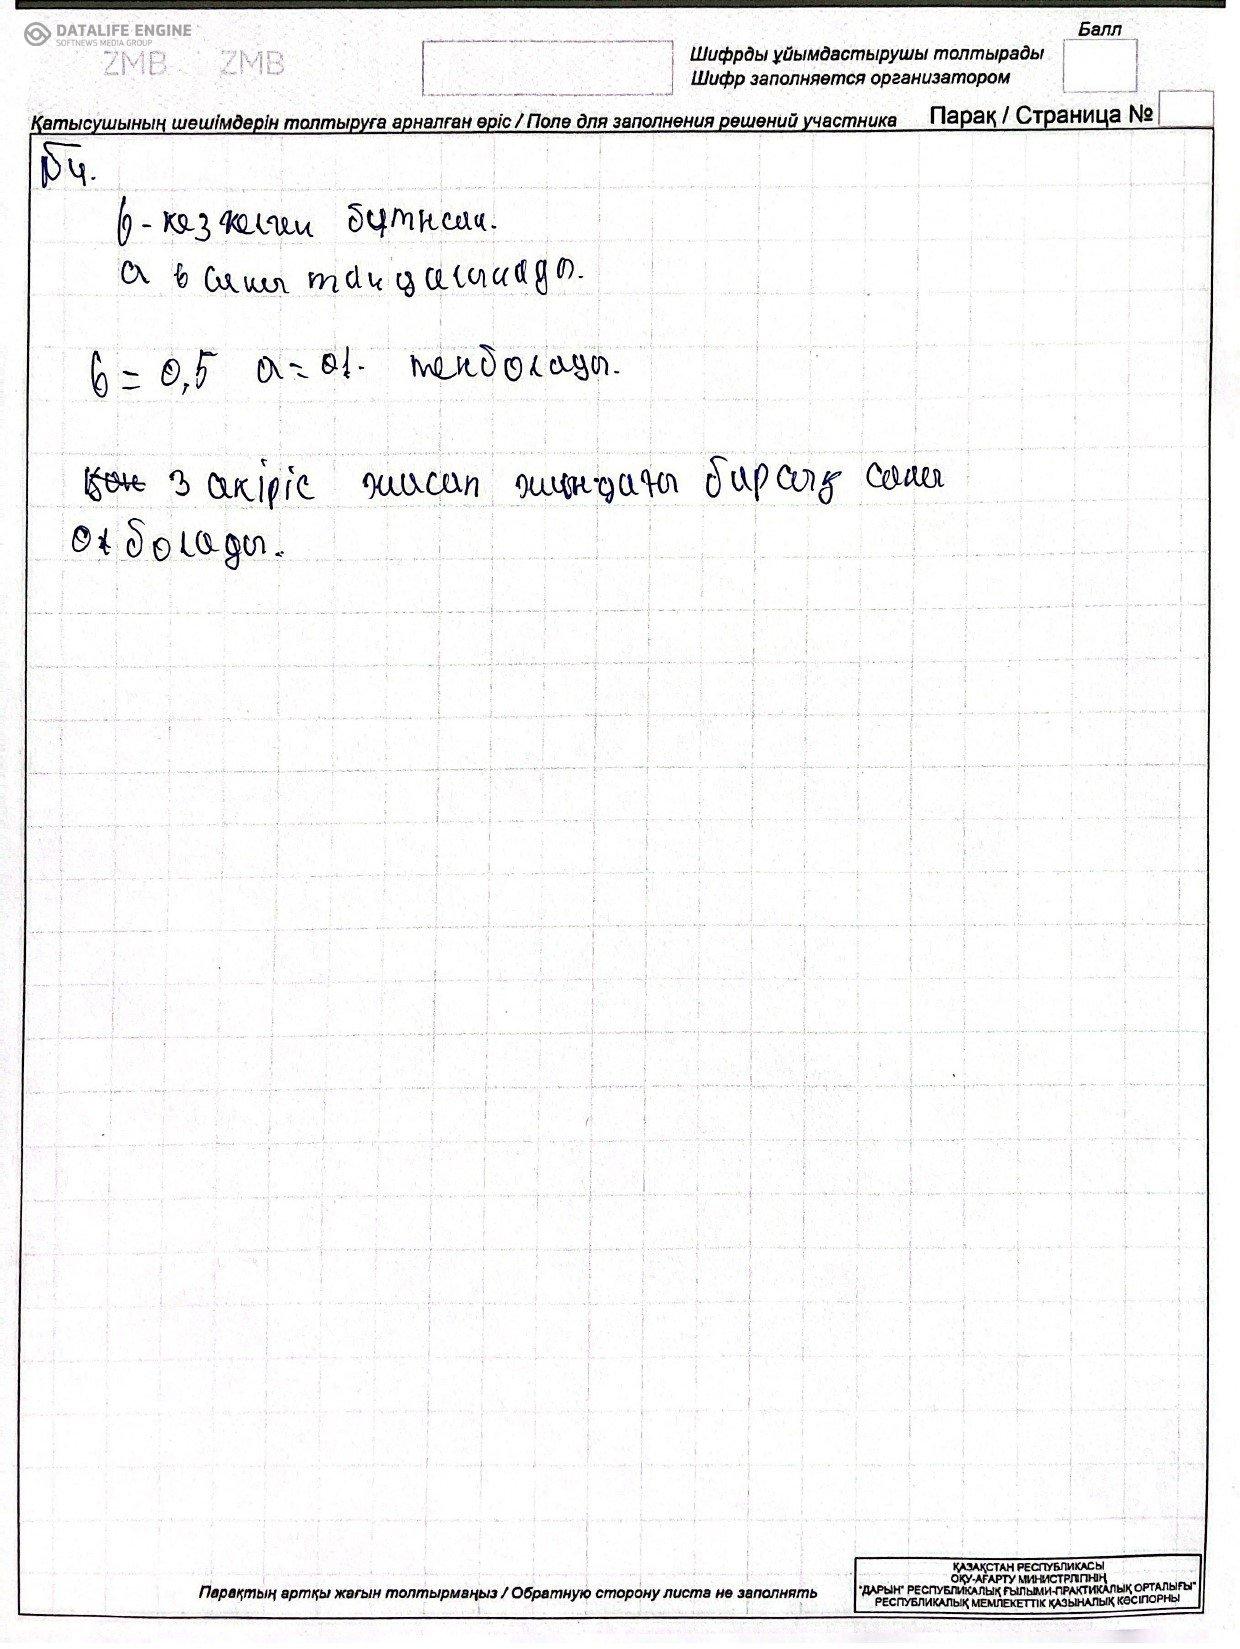 DATALIFE ENGINE
SOFTNEWS MEDIA GROUP
ZMB ZMB
Балл
Шифрды ұйымдастырушы толтырады
Шифр заполняется организатором
Қатысушының шешімдерін толтыруға арналған өріс / Поле для заполнения решений участника
Парақ / Страница №
№4.
b - кез келген бүтін сан.
а в саны таңдалынады.
b = 0,5 а = 01. тең болады.
3 әкіріс жасап жиындағы барлық саны
болады.
Парақтың артқы жағын толтырмаңыз / Обратную сторону листа не заполнять
ҚАЗАҚСТАН РЕСПУБЛИКАСЫ
ОҚУ-АҒАРТУ МИНИСТРЛІГІНІҢ
"ДАРЫН" РЕСПУБЛИКАЛЫҚ ҒЫЛЫМИ-ПРАКТИКАЛЫҚ ОРТАЛЫҒЫ"
РЕСПУБЛИКАЛЫҚ МЕМЛЕКЕТТІК ҚАЗЫНАЛЫҚ КӘСІПОРНЫ